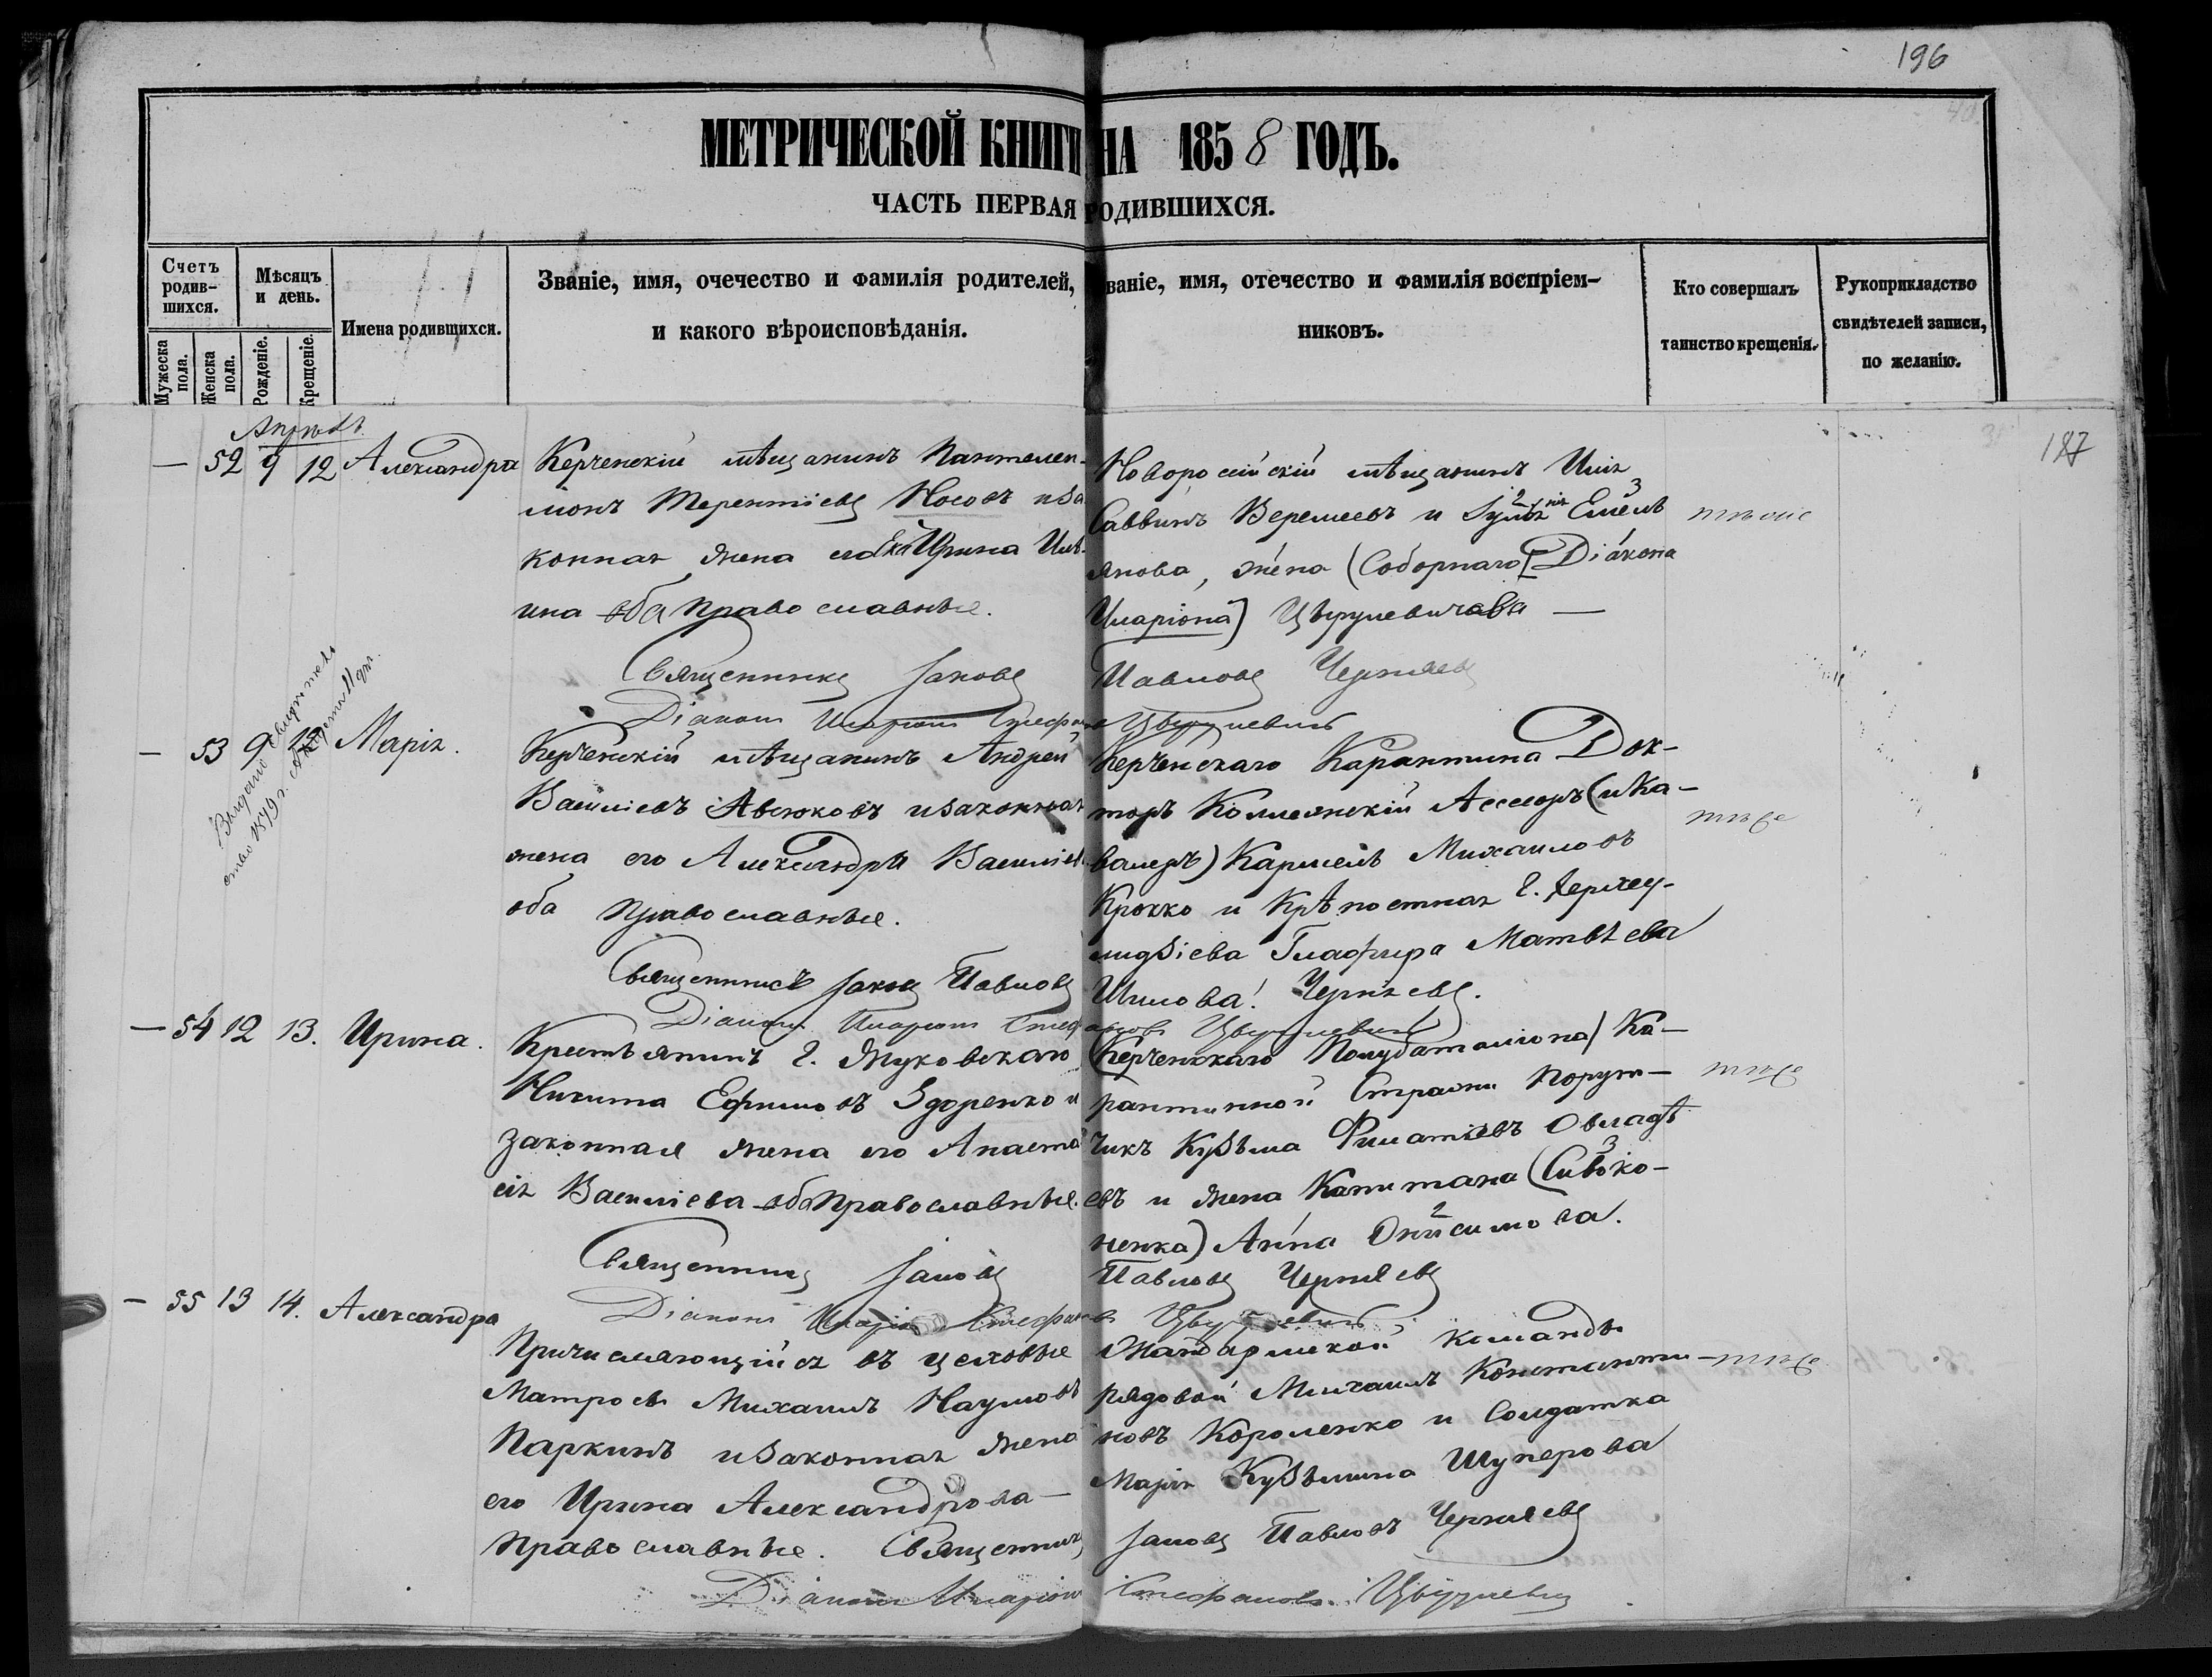 196
МЕТРИЧЕСКОЙ КНИГИ НА 1858 ГОДЪ.
ЧАСТЬ ПЕРВАЯ РОДИВШИХСЯ.
Счетъ родившихся.
Мужеска пола.
Женска пола.
Мѣсяцъ и день.
Рожденіе.
Крещеніе.
Имена родившихся.
Званіе, имя, очечество и фамилія родителей,
и какого вѣроисповѣданія.
званіе, имя, отечество и фамилія воспріем-
никовъ.
Кто совершалъ
таинство крещенія.
Рукоприкладство
свидѣтелей записи,
по желанію.
187
Апрѣль
— 52 9 12 Александра
Керченскій мѣщанинъ Пантелей-
монъ Терентіевъ Носовъ и за
конная жена его Ирина Иль-
ина оба православные.
Новоросійскій мѣщанинъ Илія
Саввинъ Веремеевъ и Емель
янова, жена (Соборнаго Діакона
Иларіона) Цвѣрулевичава —
тѣже
Священникъ Іаковъ Павловъ Черняевъ
Діаконъ Иларіонъ Стефановъ Цвѣрулевичъ
— 53 9 12 Марія.
Выдано свидѣтель
ство 1879 г.
Керченскій мѣщанинъ Андрей
Василіевъ Авсюковъ и законная
жена его Александра Василіев
оба православные.
Керченскаго Карантина Док-
торъ Коллежскій Ассесоръ (и Ка-
валеръ) Кармелъ Михаиловъ
Крокко и Крѣпостная Г.
Глафира Матвѣева
Шилова!
тѣже
Священникъ Іаковъ Павловъ Черняевъ.
Діаконъ Иларіонъ Стефановъ Цвѣрулевичъ
— 54 12 13. Ирина.
Крестьянинъ Г. Жуковскаго
Никита Ефимовъ Здоренко и
законная жена его Анаста
сія Василіева оба православные.
(Керченскаго Полубаталіона) Ка-
рантинной Стражи Порут-
чикъ Кузьма Филатіевъ Овладѣ
евъ и жена Капитана (Сивоко-
ненка) Анна Онисимова.
тѣже
Священникъ Іаковъ Павловъ Черняевъ
Діаконъ Иларіонъ Стефановъ Цвѣрулевичъ
— 55 13 14. Александра
Причисляющійся въ цеховые
Матросы Михаилъ Наумовъ
Паркинъ и законная жена
его Ирина Александрова —
православные.
Жандармской команды
рядовой Михаилъ Константи-
новъ Короленко и Солдатка
Марія Кузьмина Шуперова
тѣже
Священникъ Іаковъ Павловъ Черняевъ
Діаконъ Иларіонъ Стефановъ Цвѣрулевичъ